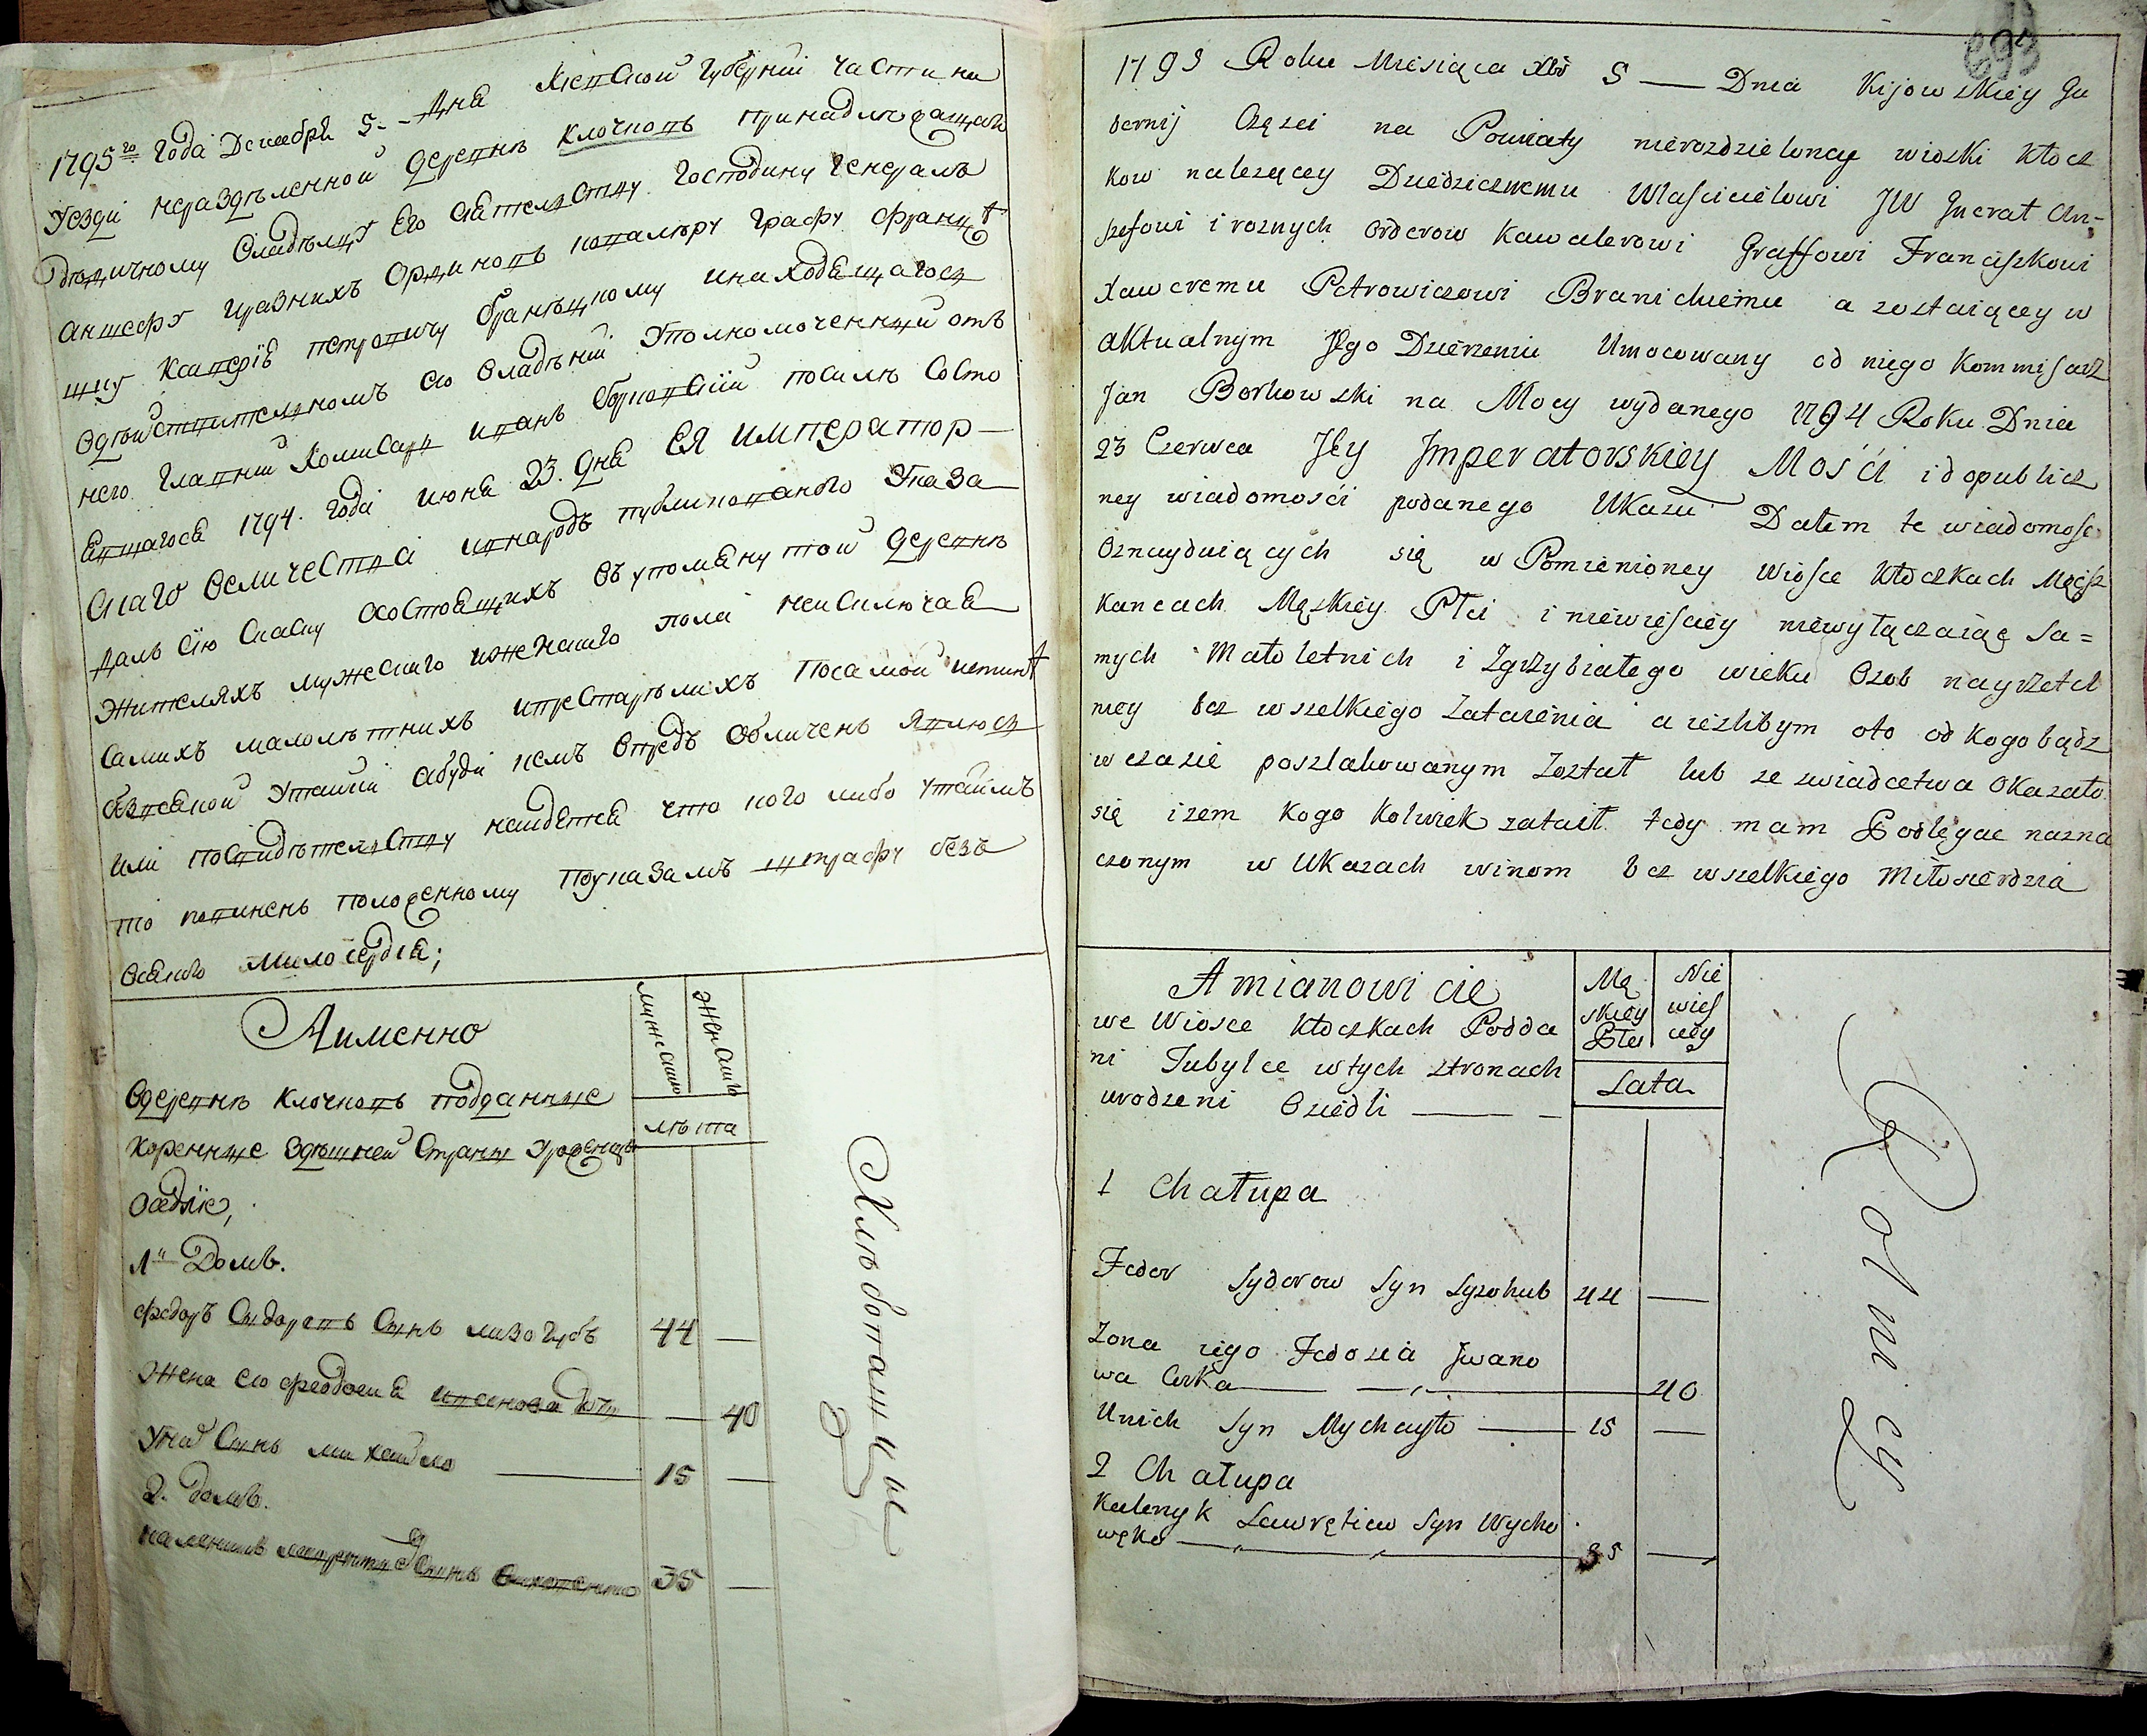 1795го года Декабря 5.- дня Кіевской губерніи части на
уезди нераздѣленной деревнѣ Клочковъ принадлежащая
дѣдичному владѣлцу Его Сіятелству господину генералъ
аншефу и разнихъ ординовъ кавалѣру графу Францѣ
шку Ксаверію Петровичу Браницкому и находящагося
в дѣйствителномъ его владѣніи уполномоченний отъ
него главний комисарь Иванъ Борковскій по силѣ состо
явшагося 1794. года июня 23. дня ЕЯ ИМПЕРАТОР-
СКАГО Величества и въ народъ публикованого указа
далъ сію сказку о состоящихъ въ упомянутой деревнѣ
жителяхъ мужеского и женского пола не исключая
самихъ малолѣтнихъ и престарѣлихъ по самой истинѣ
без всякой утайки а буди кемъ впредъ обличенъ явлюся
или по свидѣтелству найдется что кого либо утаилъ
то повинень положенному по указамъ штрафу безъ
всякого милосердія;
А именно
мужеского
женского
лѣта
В деревнѣ Клочковъ подданние
коренние здѣшней страни уроженци
оседліе,
1й Домъ.
Федоръ Сидоровъ синъ Лизогубъ 44 —
Жена его Феодосия Иванова дочь — 40
У них синъ Михайло — 15 —
2. домъ.
Каленикъ Лаврентиевъ синъ Виховенко 35 —
Хлѣбопашцы
693
1795 Roku Miesiąca Xbr 5 — Dnia Kijowskiey Gu
bernij Częsci na Powiaty nierozdzieloney wioski Kłocz
kow nalezącey Dziedzicznemu Właścicielowi JW Generał An-
szefowi i roznych orderow Kawalerowi Graffowi Franciszkowi
Xaweremu Petrowiczowi Branickiemu a zostaiącey w
aktualnym Jego Dzierzeniu Umocowany od niego Kommisarz
Jan Borkowski na Mocy wydanego 1794 Roku Dnia
23 Czerwca Jey Jmperatorskiey Mośći i dopublicz
ney wiadomośći podanego Ukazu Dałem te wiadomość
oznayduiących się w Pomienioney wiosce Kłoczkach Miesz
kancach Męskiey Płci i niewieściey niewyłączaiąc Sa=
mych Małoletnich i Zgrzybiałego wieku Osob nayrzetel
niey bez wszelkiego Zataienia a iezlibym oto od kogo bądz
w czasie poszlakowanym Został lub ze zwiadcetwa Okazało
się izem kogo kolwiek zataił tedy mam Podlegac nazna
czonym w Ukazach winom bez wszelkiego Miłosierdzia
A mianowicie
we Wiosce Kłoczkach Podda
ni Tubylce w tych stronach
urodzeni Osiedli — -
Mę
skiey
Płci
Nie
wieś
ciey
Lata
1 Chałupa
Fedor Sydorow Syn Lyzohub 44 —
Zona iego Fedosia Jwano
wa Corka — 40
Unich Syn Mychayło — 15 —
2 Chałupa
Kalenyk Lawrętiew Syn Wycho
węko — 35 —
Rolnicy